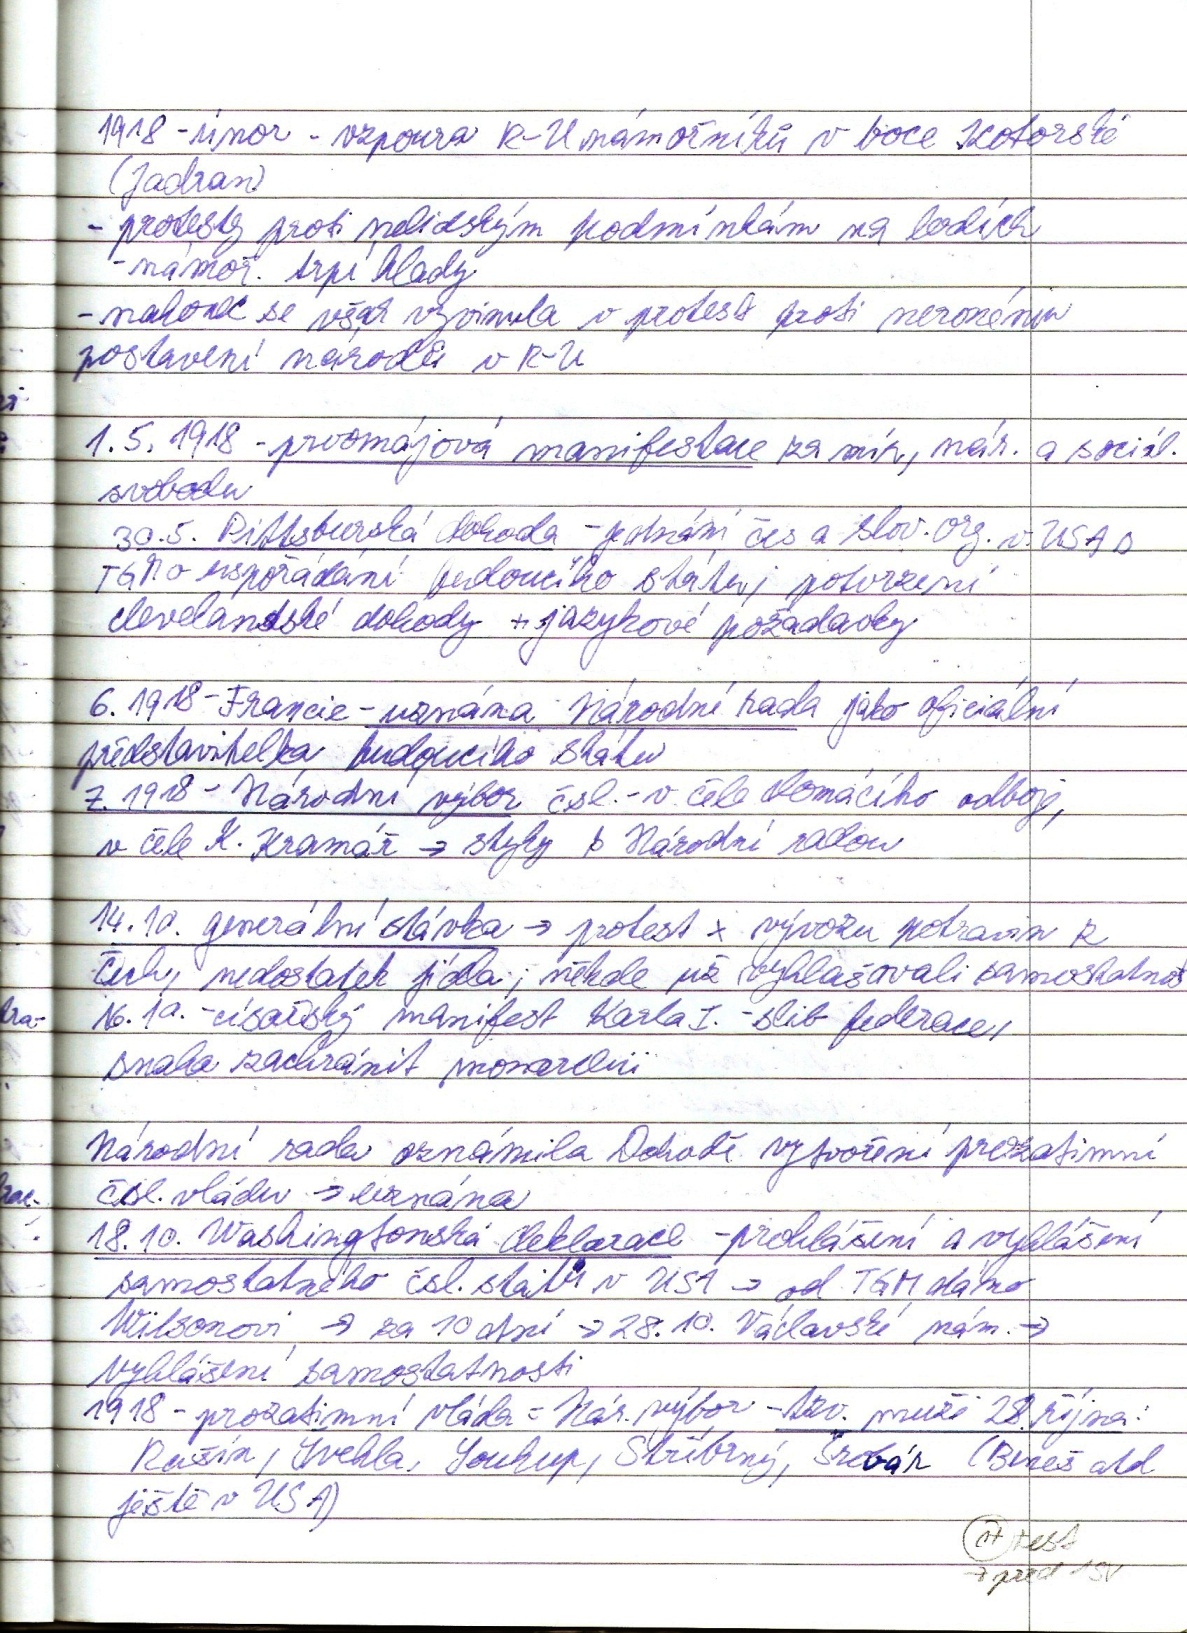 1918 - únor - vzpoura R-U námořníků v boce Kotorské
(Jadran)
- protesty proti nelidským podmínkám na lodích
- námoř. trpí hlady
- nakonec se však vyvinula v protest proti nerovnému
postavení národů v R-U
1.5. 1918 - prvomájová manifestace za mír, nár. a sociál.
svobodu
30.5. Pittsburská dohoda - jednání čes a slov. org. v USA s
TGM o uspořádání budoucího státu, potvrzení
clevelandské dohody + jazykové požadavky
6. 1918 - Francie - uznána Národní rada jako oficiální
představitelka budoucího státu
7. 1918 - Národní výbor čsl. - v čele domácího odboje,
v čele K. Kramář → styky s Národní radou
14.10. generální stávka → protest x vývozu potravin z
Čech, nedostatek jídla; někde už vyhlašovali samostatnost
16.10. - císařský manifest Karla I. - slib federace,
snaha zachránit monarchii
Národní rada oznámila Dohodě vytvoření prozatimní
čsl. vládu → uznána
18.10. Washingtonská deklarace - prohlášení a vyhlášení
samostatného čsl. státu v USA → od TGM dáno
Wilsonovi → za 10 dní → 28.10. Václavské nám. →
vyhlášení samostatnosti
1918 - prozatimní vláda = Nár. výbor - tzv. muži 28. října:
Rašín, Švehla, Soukup, Stříbrný, Šrobár (Beneš atd
ještě v USA)
test
→ před 1SV